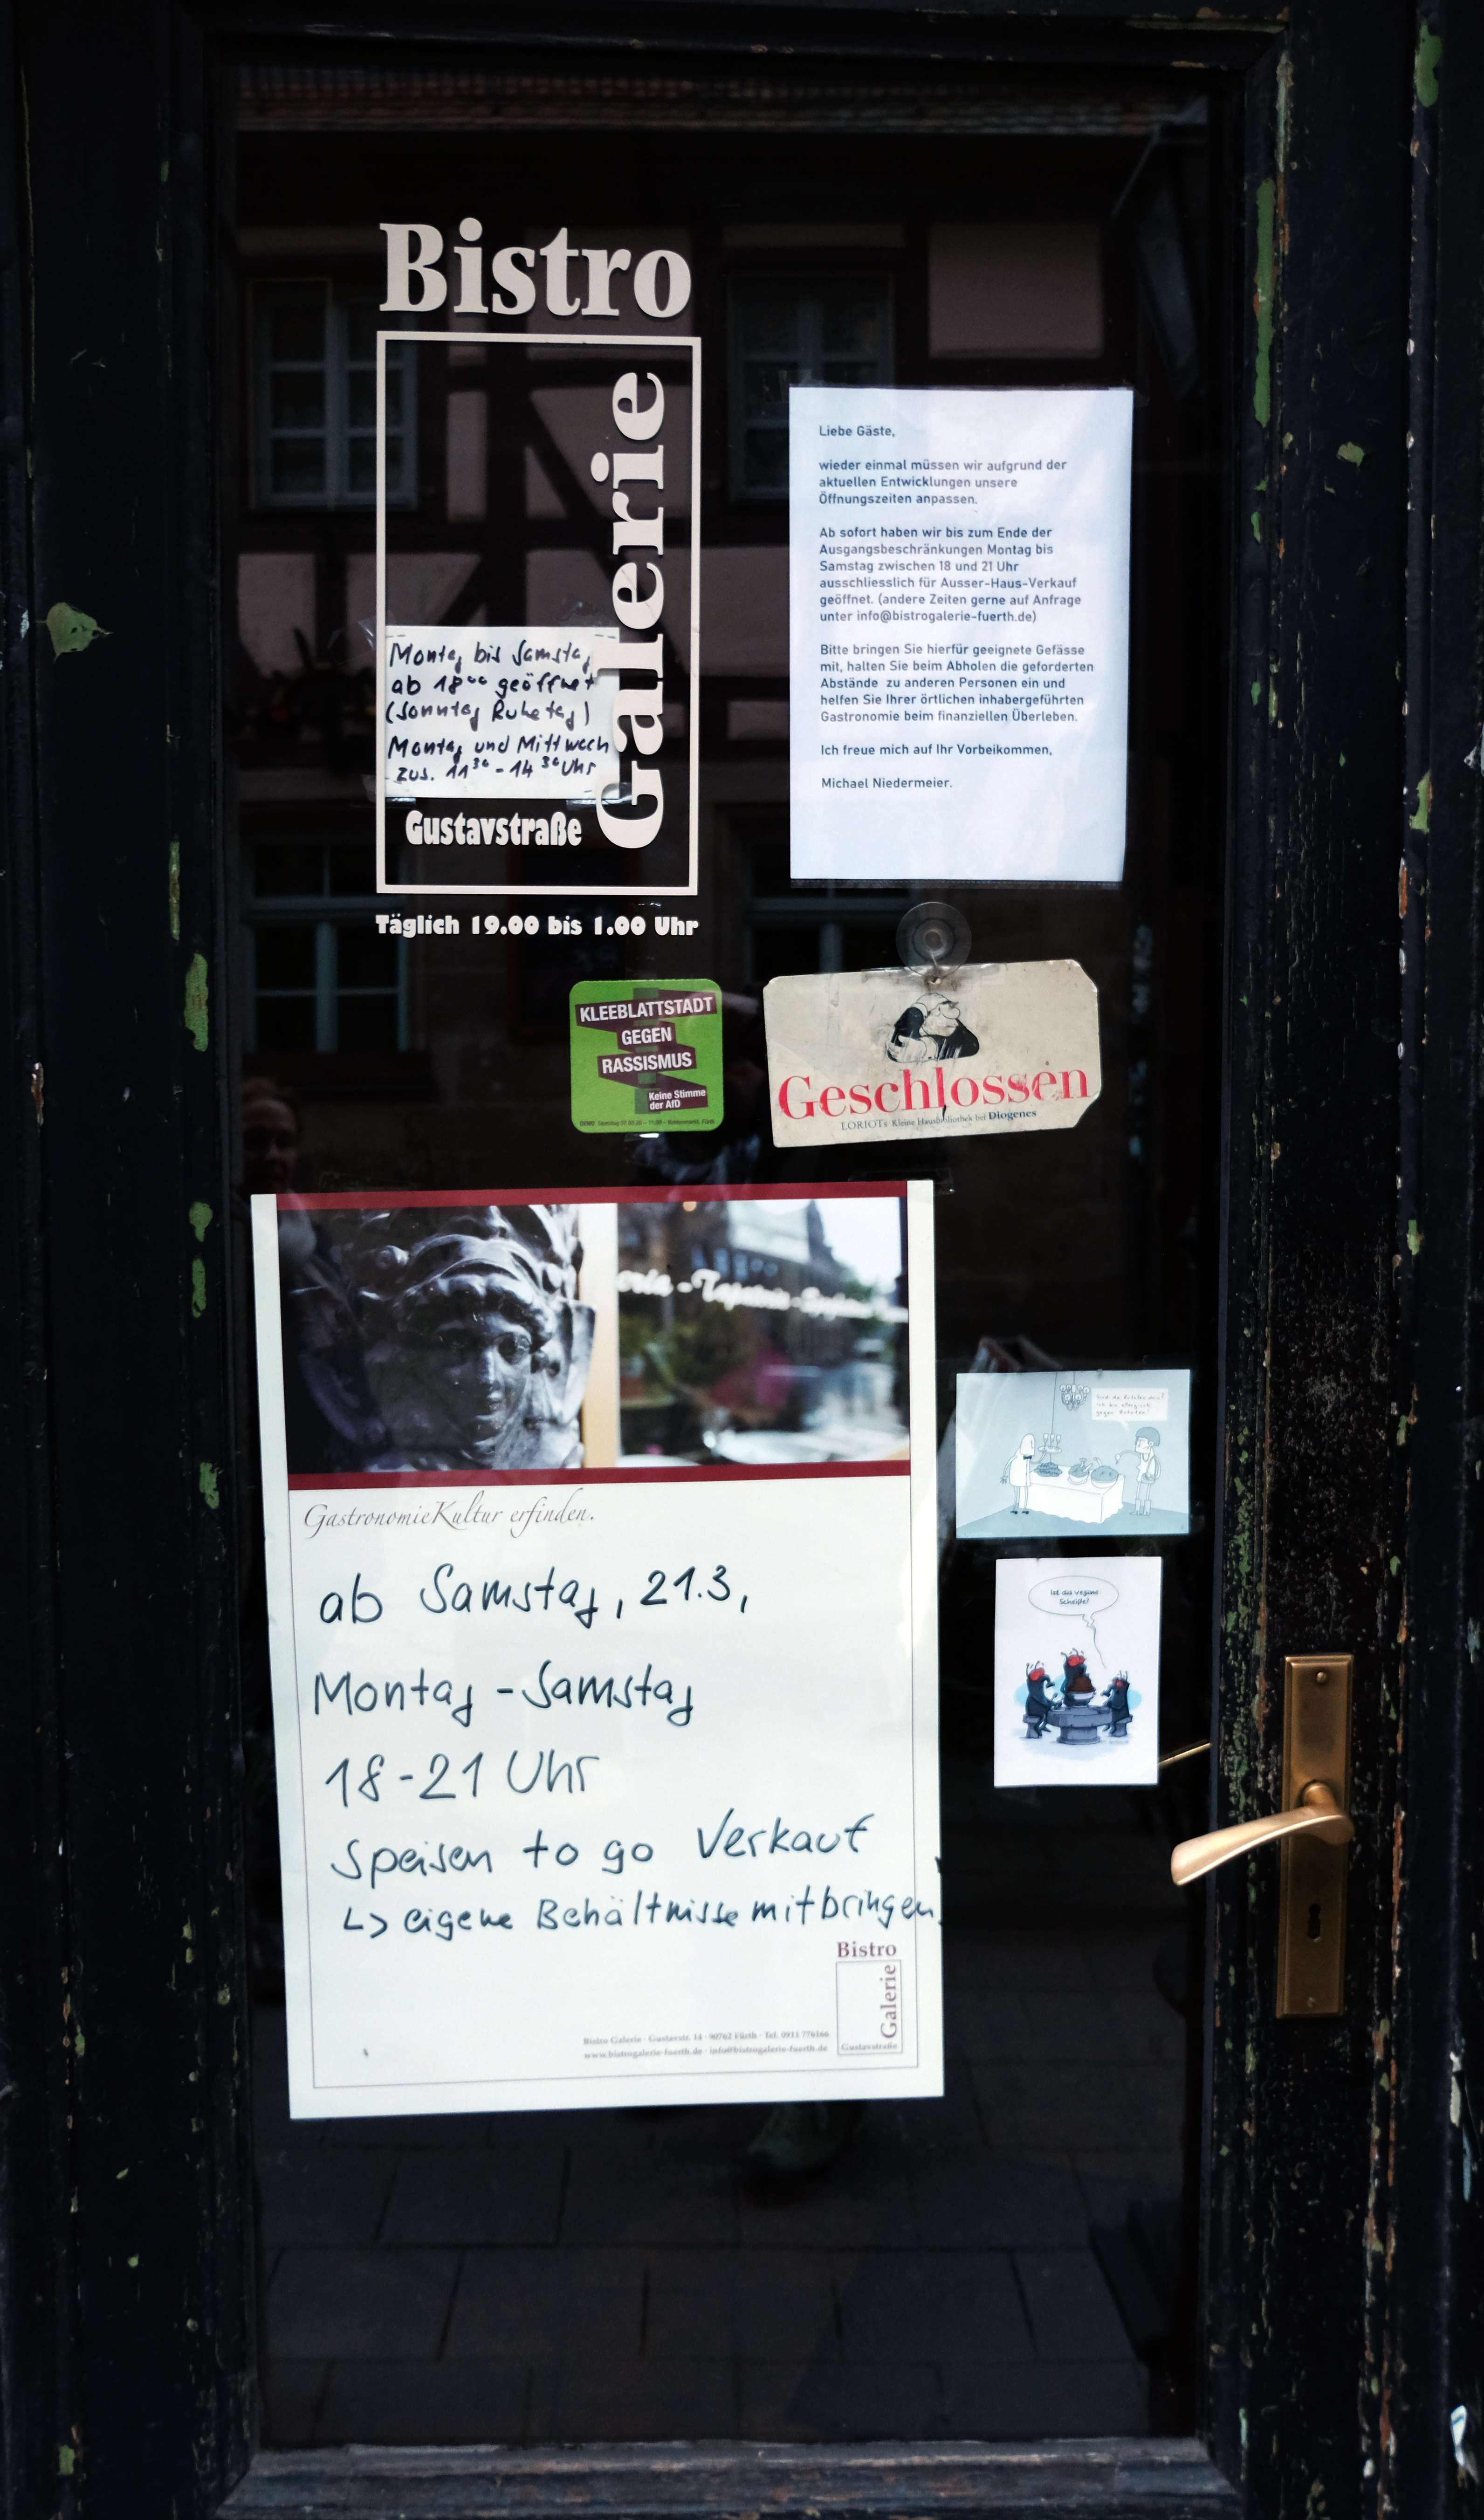 Bistro
Galerie
Montag bis Samstag
ab 18⁰⁰ geöffnet
(Sonntag Ruhetag)
Montag und Mittwoch
zus. 11³⁰ - 14³⁰ Uhr
Gustavstraße
Täglich 19.00 bis 1.00 Uhr
Liebe Gäste,
wieder einmal müssen wir aufgrund der
aktuellen Entwicklungen unsere
Öffnungszeiten anpassen.
Ab sofort haben wir bis zum Ende der
Ausgangsbeschränkungen Montag bis
Samstag zwischen 18 und 21 Uhr
ausschliesslich für Ausser-Haus-Verkauf
geöffnet. (andere Zeiten gerne auf Anfrage
unter info@bistrogalerie-fuerth.de)
Bitte bringen Sie hierfür geeignete Gefässe
mit, halten Sie beim Abholen die geforderten
Abstände zu anderen Personen ein und
helfen Sie Ihrer örtlichen inhabergeführten
Gastronomie beim finanziellen Überleben.
Ich freue mich auf Ihr Vorbeikommen,
Michael Niedermeier.
KLEEBLATTSTADT
GEGEN
RASSISMUS
Keine Stimme
der AfD
Geschlossen
LORIOTs Kleine Hausbibliothek bei Diogenes
GastronomieKultur erfinden.
ab Samstag, 21.3,
Montag - Samstag
18-21 Uhr
Speisen to go Verkauf
↳ eigene Behältnisse mitbringen!
Bistro
Galerie
Gustavstraße
Bistro Galerie · Gustavstr. 14 · 90762 Fürth · Tel. 0911 776166
www.bistrogalerie-fuerth.de · info@bistrogalerie-fuerth.de
Ist das vegane
Scheiße?